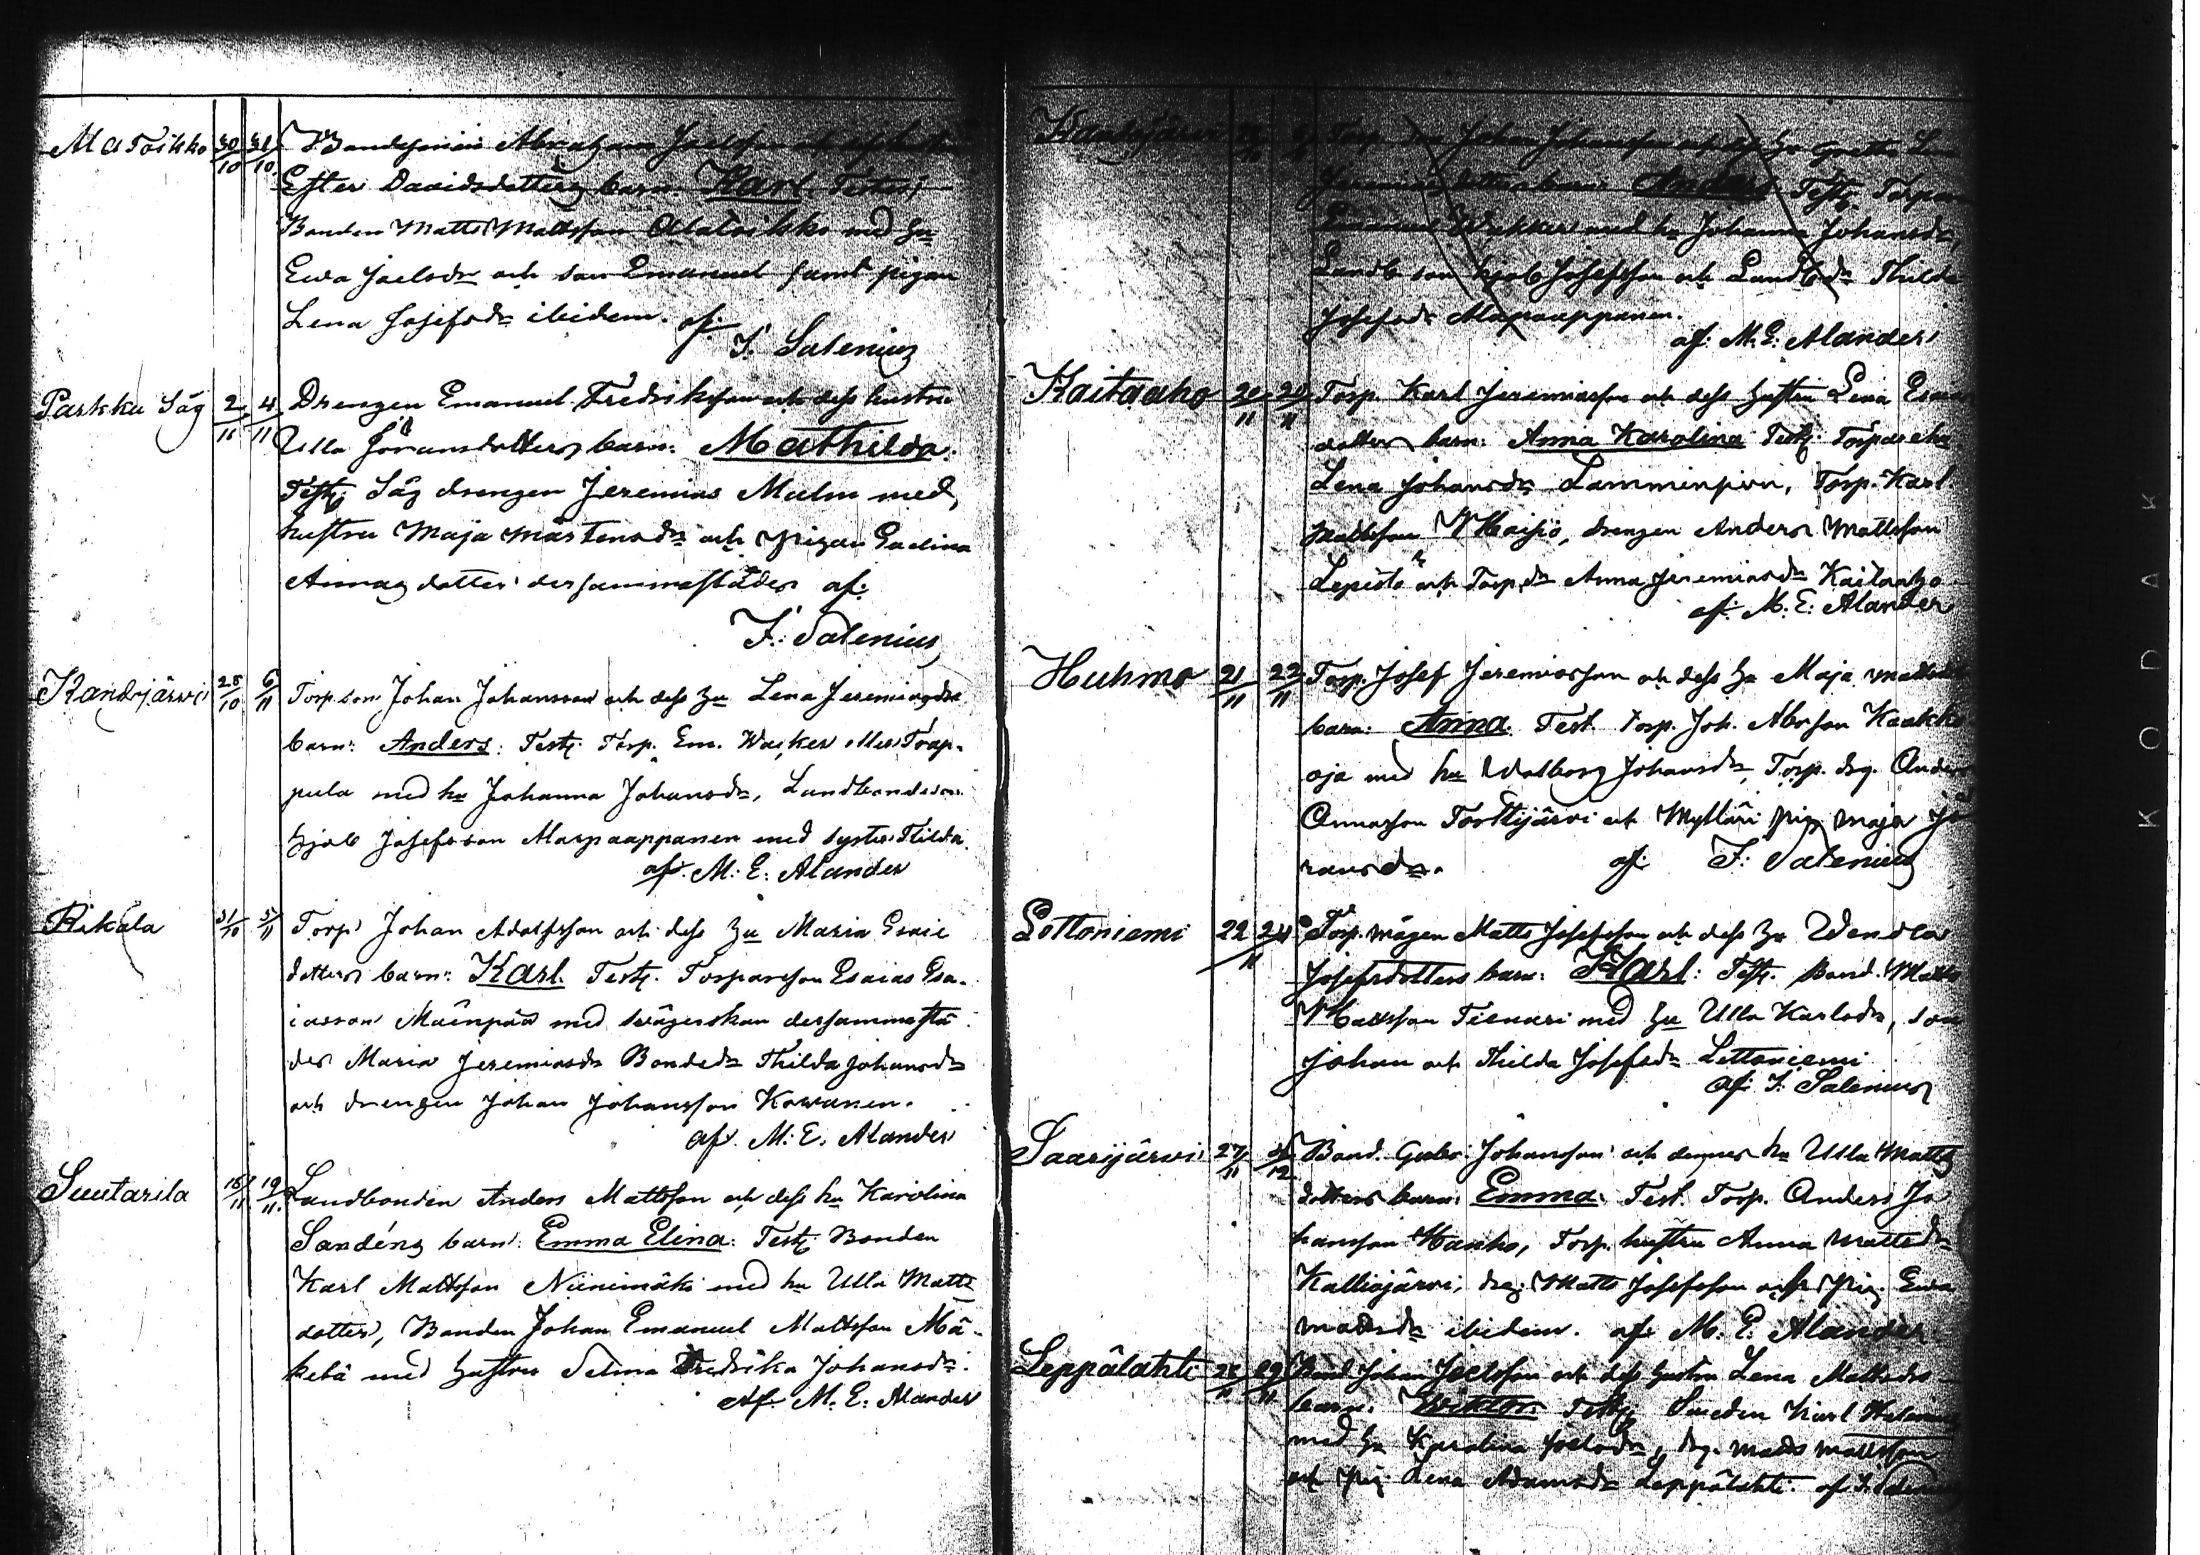 Alatoikko 30/10 31/10 Bondesonen Abraham Joelsson och
Ester Davidsdotters barn: Karl. Test:
Bonden Matts Mattsson Alatoikko med hu
Ewa Joelsdr och son Emanuel samt pigan
Lena Josefsdr ibidem. af:
F. Salenius
Parkku Såg 2/11 4/11 Drengen Emanuel Fredriksson och dess hustru
Ulla Göransdotters barn: Mathilda.
Test: Såg drengen Jeremias Malm med
hustru Maja Mårtensdr och pigan Eudina
Annas dotter dersammastädes af:
F: Salenius
Kandjärwi 25/10 6/11 Torp. son Johan Johansson och dess hu Lena Jeremiasdrs
barn: Anders: Test: Torp. Em. Wacker Torp-
pula med hu Johanna Johansdr, Landbondeson
Hjalb Josefsson Marpaappanen med syster Thilda.
af. M. E. Alander
Rikala 31/10 5/11 Torp Johan Adolfsson och dess hu Maria Esaie
dotters barn: Karl. Test: Torpareson Esaias Esa-
iasson Mäenpää med svägerskan dersammastä
des Maria Jeremiasdr Bondedr Thilda Johansdr
och drengen Johan Johansson Kowanen.
af. M. E. Alander
Suutarila 18/11 19/11 Landbonden Anders Mattsson och dess hu Karolina
Sandéns barn: Emma Elina: Test: Bonden
Karl Mattsson Niinimäki med hu Ulla Matts
dotter, Bonden Johan Emanuel Mattsson Mä-
kelä med hustru Selma Fredrika Johansdr.
Af. M. E. Alander
Kandjärwi Torp. Johan Johansson och hu Greta
Jeremias dotters barn: Anders Test: Torparn
Emanuel Wakker med hu Johanna Johansdr,
Landb. son Hjalb Josefsson och Landbdr Thilda
Josefsdr Marpaappanen.
af: M. E. Alander
Kaitaaho 20/11 20/11 Torp. Karl Jeremiasson och dess hustru Lena Esaias
dotters barn: Anna Karolina Test: Torpare hu
Lena Johansdr Lamminsivu, Torp. Karl
Mattsson Maijsö, drengen Anders Mattsson
Lepistö och Torp. dr Anna Jeremiasdr Kaitaaho
af: M. E. Alander
Huhmo 21/11 22/11 Torp. Josef Jeremiasson och dess hu Maja Mattsd
barn: Anna. Test. Torp. Joh. Abrson Kaakko
oja med hu Walborg Johansdr, Torp. drg. Anders
Annasson Torttijärvi och Mylläri pig. Maja Jö
ransdr. af: F: Salenius
Lottoniemi 22 24/11 Torp. mågen Matts Josefsson och dess hu Wendla
Josefsdotters barn: Karl: Test. Bond. Matts
Mattsson Tienari med hu Ulla Karlsdr, son
Johan och Thilda Josefsdr Lottoniemi
af: F. Salenius
Saarijärwi 27/11 Bond. Gabr. Johansson och dennes hu Ulla Matts
dotters barn: Emma. Test. Torp. Anders Jo
hansson Hanko, Torp. hustru Anna Mattsdr
Kalliojärvi, drg. Matts Josefsson och pig. Ewa
Mattsdr ibidem. af: M. E. Alander
Leppälahti 28/11 29/11 Bond Johan Joelsson och dess hustru Lena Mattsdrs
barn: Wiktor. Test: Smeden Karl
med hu Karolina Joelsdr, drg. Matts Mattsson
och pig Lena Adamsdr Leppälahti. af F. Salenius
KODAK